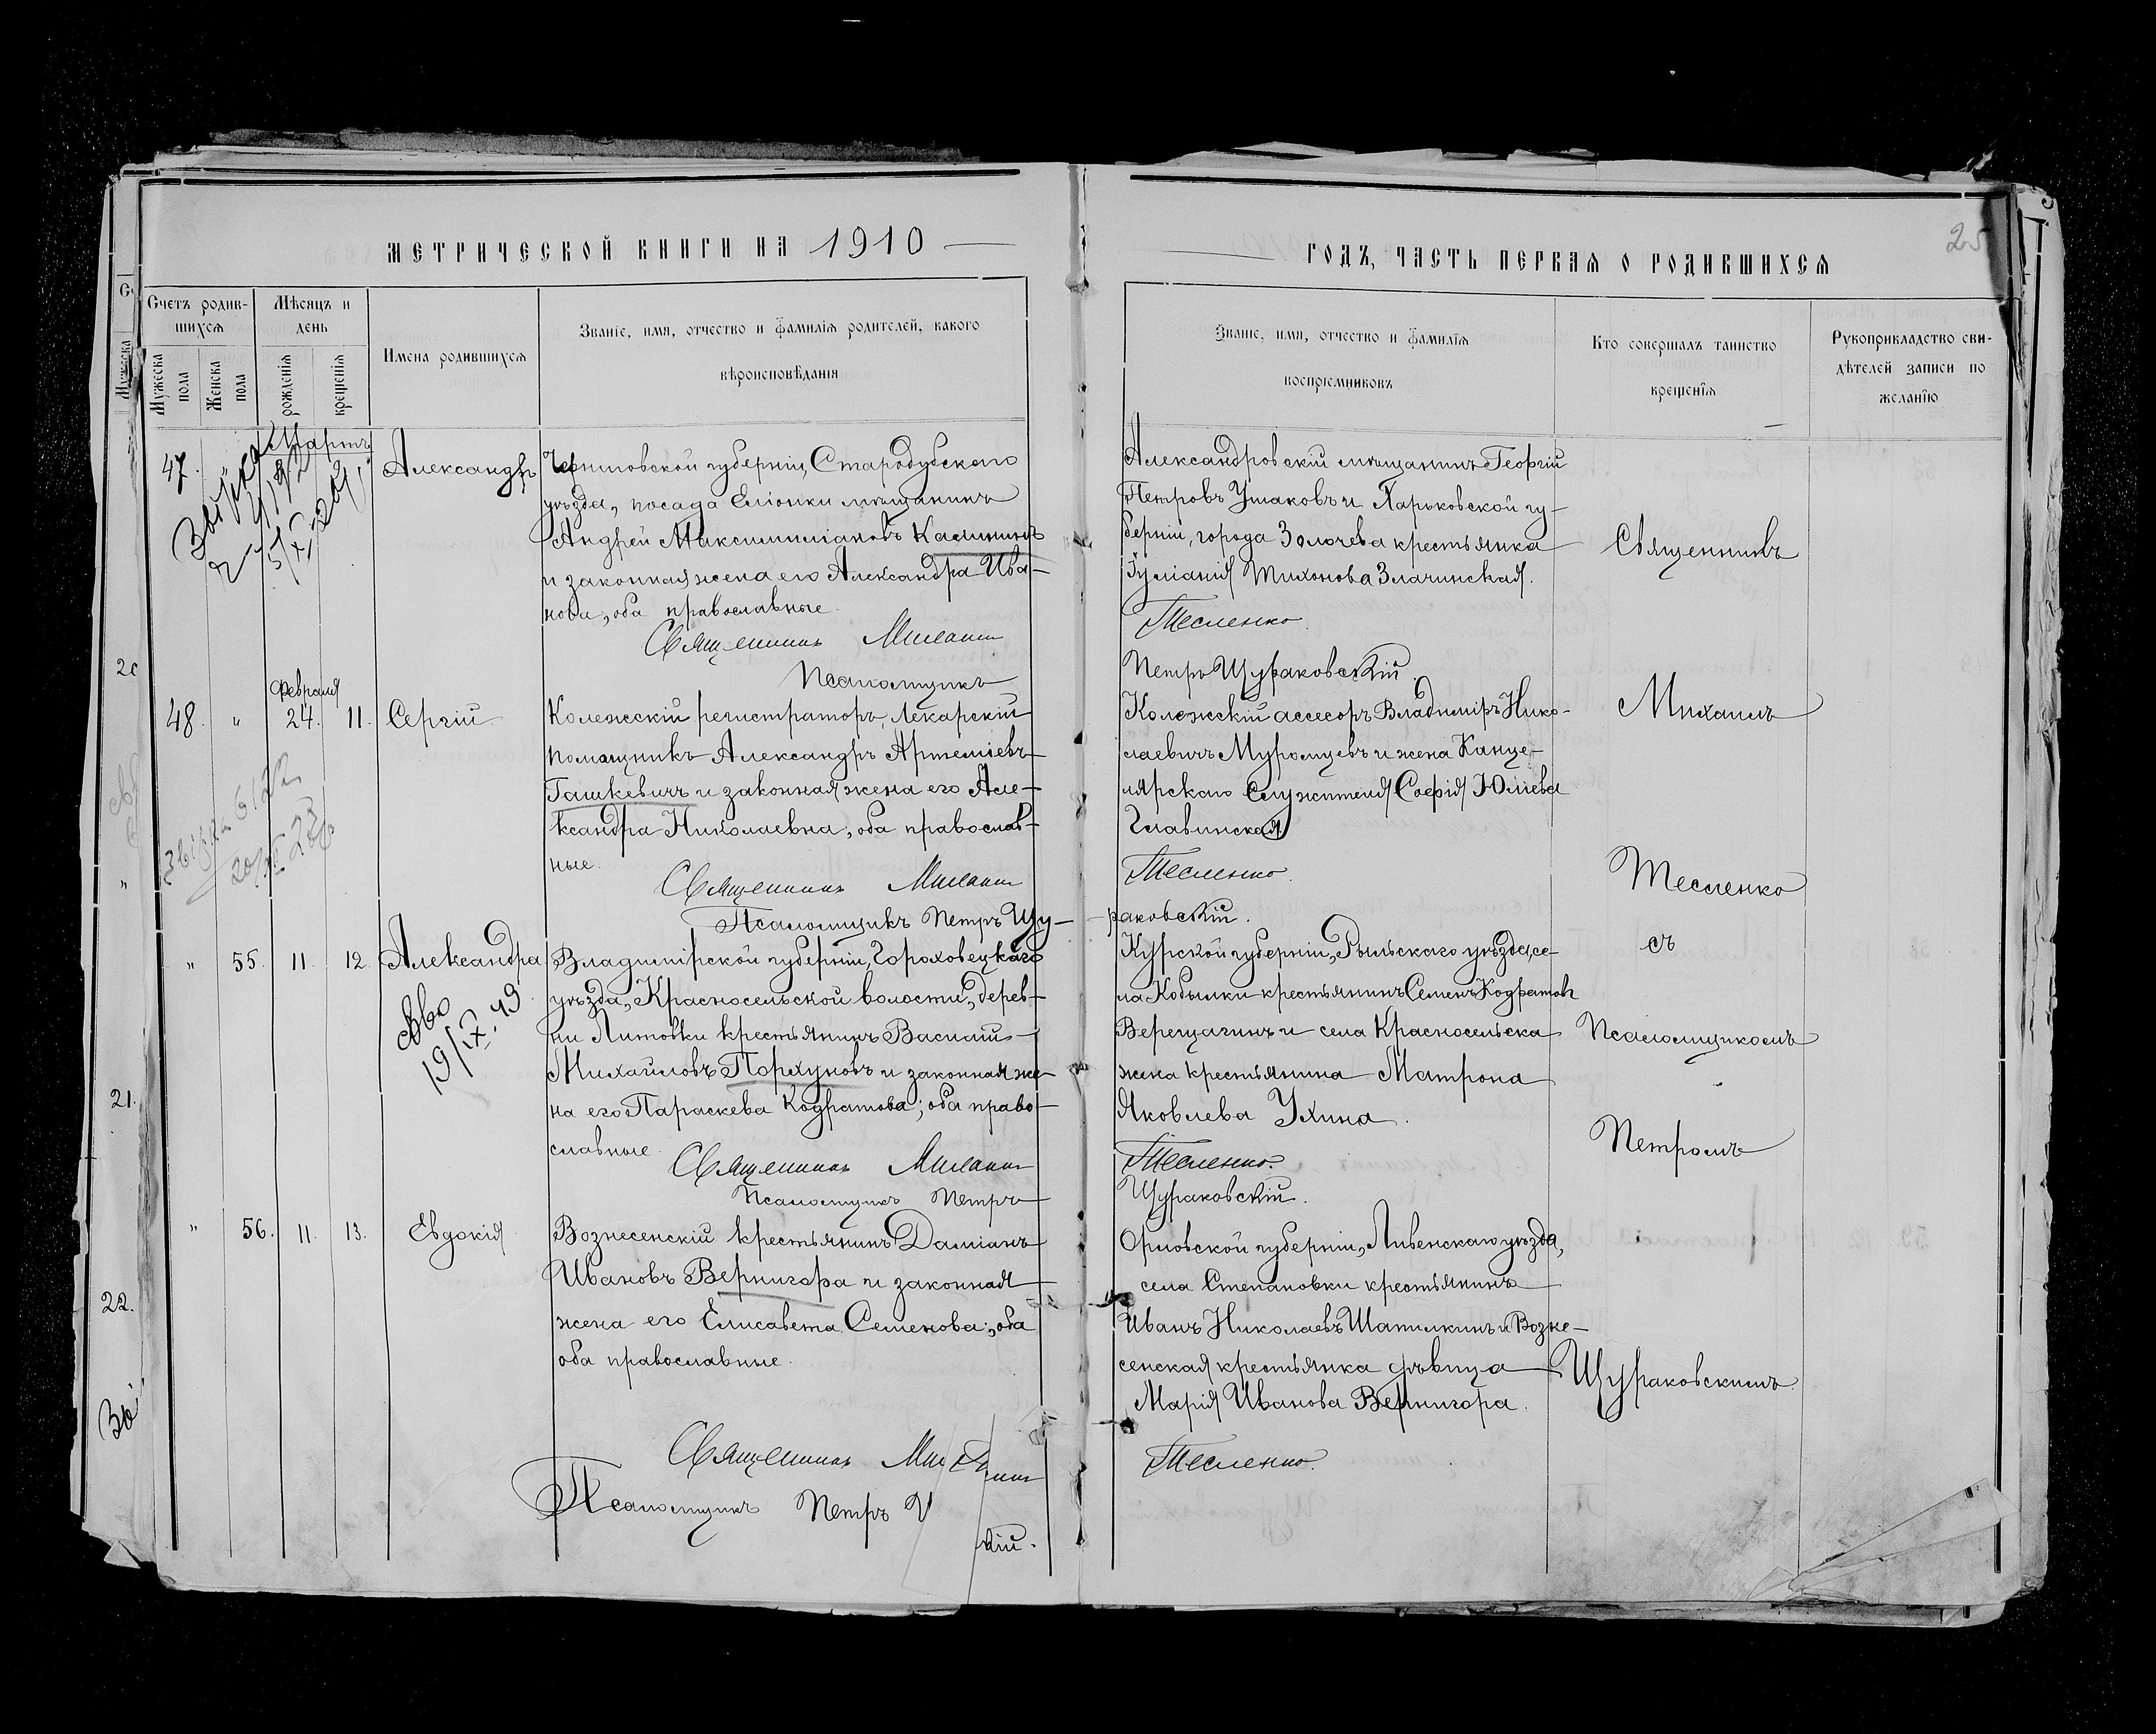 МЕТРИЧЕСКОЙ КНИГИ НА 1910
Счетъ родив-
шихся
Мѣсяцъ и
день
Имена родившихся
Званіе, имя, отчество и фамилія родителей, какого
вѣроисповѣданія
Мужеска
пола
Женска
пола
рожденія
крещенія
Мартъ
47.
Александръ
Черниговской губерніи, Стародубскаго
уѣзда, посада Еліонки мѣщанинъ
Андрей Максимиліановъ Калининъ
и законная жена его Александра Ива-
нова, оба православные.
Священникъ Михаилъ
Псаломщикъ
Февраля
48. " 24. 11. Сергій
Колежскій регистраторъ, лекарскій
помощникъ Александръ Артеміевъ
Гашкевичъ и законная жена его Але-
ксандра Николаевна, оба православ-
ные.
Священникъ Михаилъ
Псаломщикъ Петръ Щу-
" 55. 11. 12. Александра
Владимірской губерніи, Гороховецкаго
уѣзда, Красносельской волости, дерев-
ни Литовки крестьянинъ Василій
Михайловъ Порхуновъ и законная же-
на его Параскева Кодратова; оба право-
славные.
Священникъ Михаилъ
Псаломщикъ Петръ
19/IX.49
" 56. 11. 13. Евдокія
Вознесенскій крестьянинъ Даміанъ
Ивановъ Вернигора и законная
жена его Елисавета Семенова; оба
оба православные.
Священникъ
Псаломщикъ Петръ
кій.
20
21.
22.
25
ГОДЪ, ЧАСТЬ ПЕРВАЯ О РОДИВШИХСЯ
Званіе, имя, отчество и фамилія
воспріемниковъ
Кто совершалъ таинство
крещенія
Рукоприкладство сви-
дѣтелей записи по
желанію
Александровскій мѣщанинъ Георгій
Петровъ Ушаковъ и Харьковской гу-
берніи, города Золочева крестьянка
Іуліанія Тихонова Злачинская.
Тесленко.
Петръ Щураковскій.
Колежскій ассесоръ Владиміръ Нико-
лаевичъ Муромцевъ и жена Канце-
лярскаго служителя Софія Юліева
Главинская
Тесленко.
раковскій.
Курской губерніи, Рыльскаго уѣзда, се-
ла Кобылки крестьянинъ Семенъ Кодратовъ
Верещагинъ и села Красносельска
жена крестьянина Матрона
Яковлева Ухина.
Тесленко.
Щураковскій.
Орловской губерніи, Ливенскаго уѣзда,
села Степановки крестьянинъ
Иванъ Николаевъ Шатилкинъ и Возне-
сенская крестьянка дѣвица
Марія Иванова Вернигора.
Тесленко.
Священникъ
Михаилъ
Тесленко
съ
Псаломщикомъ
Петромъ
Щураковскимъ.